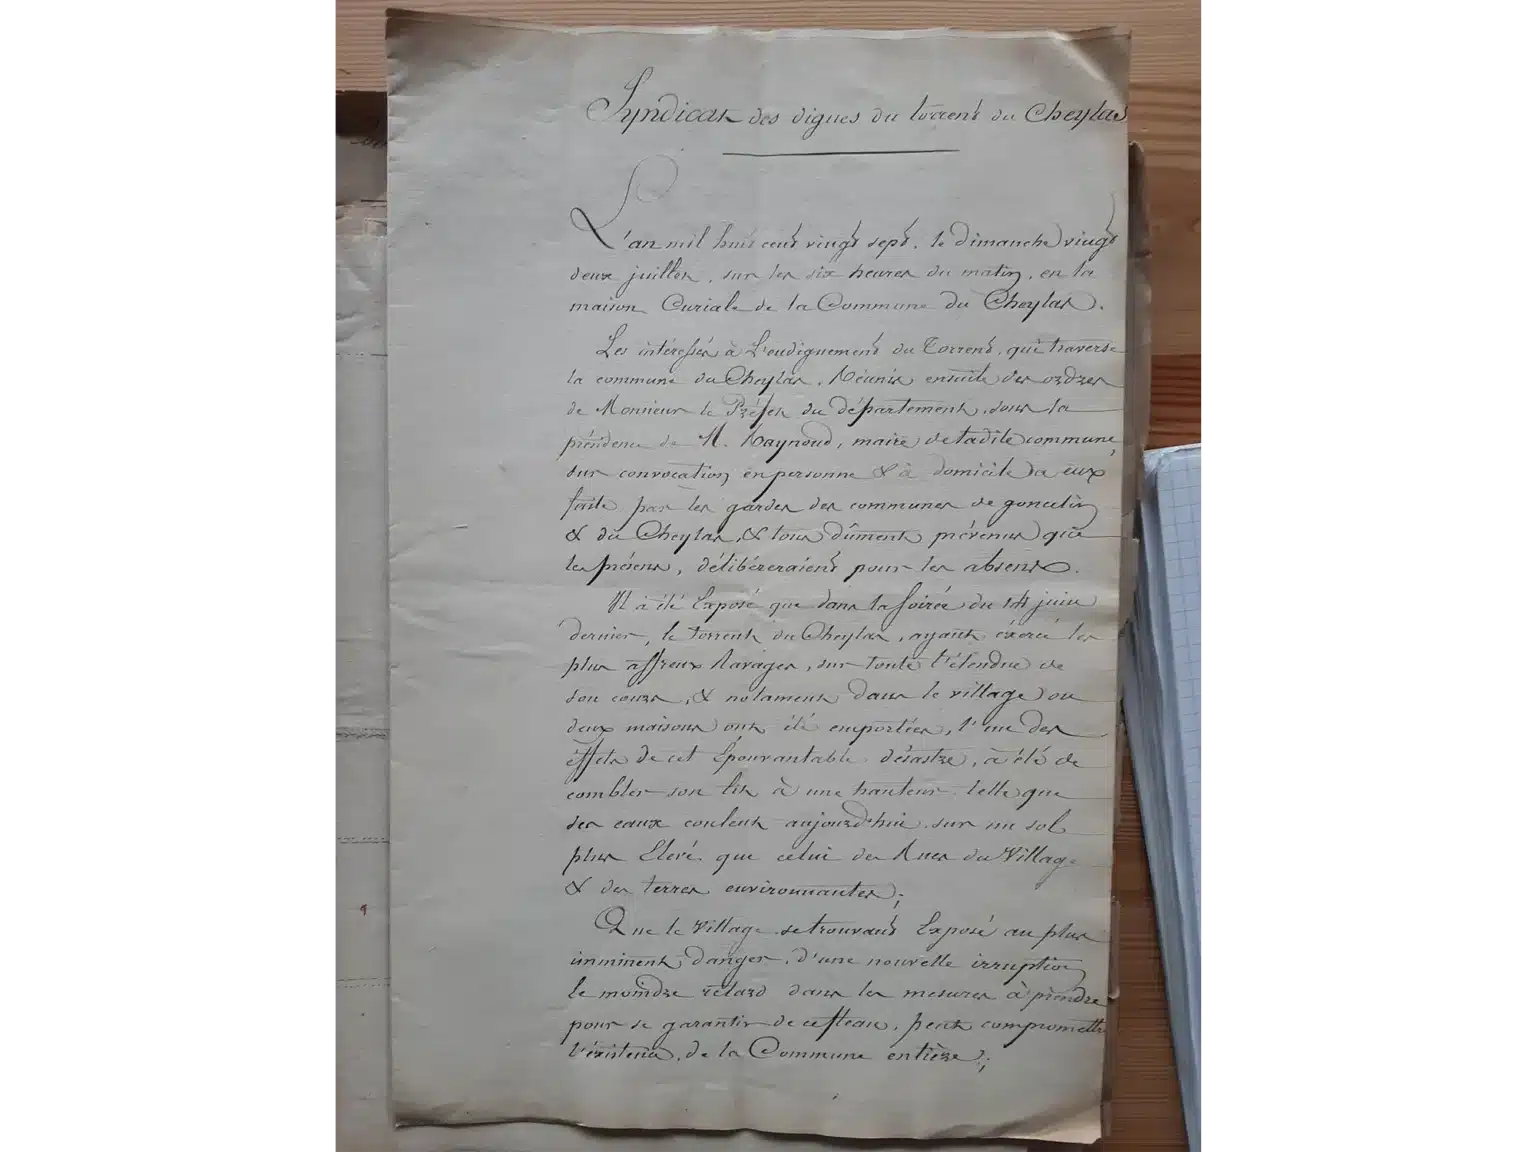 Syndicat des digues du torrent du Cheylas
L'an mil huit cent vingt sept, le dimanche vingt
deux juillet, sur les six heures du matin, en la
maison Curiale de la Commune du Cheylas.
Les intéressés à L'endiguement du Torrent, qui traverse
la commune du Cheylas, Réunis ensuite des ordres
de Monsieur le Préfet du département, sous la
présidence de M. Raynoud, maire de ladite commune,
sur convocation en personne & à domicile a eux
faite par les gardes des communes de goncelin
& du Cheylas, & tous dûment prévenus que
les présens, délibéreraient pour les absens.
Il a été Exposé que dans la soirée du 14 juin
dernier, le torrent du Cheylas, ayant éxercé les
plus affreux Ravages, sur toute l'étendue de
son cours, & notament dans le village ou
deux maisons ont été emportées, l'un des
éffets de cet Épouvantable désastre, à été de
combler son lit à une hauteur telle que
ses eaux coulent aujourd'hui sur un sol
plus Elevé que celui des Rues du Village
& des terres environnantes;
Que le Village se trouvant Exposé au plus
imminent danger, d'une nouvelle irruption
le moindre retard dans les mesures à prendre
pour se garantir de ce fleau, peut compromettre
l'éxistence, de la Commune entière;